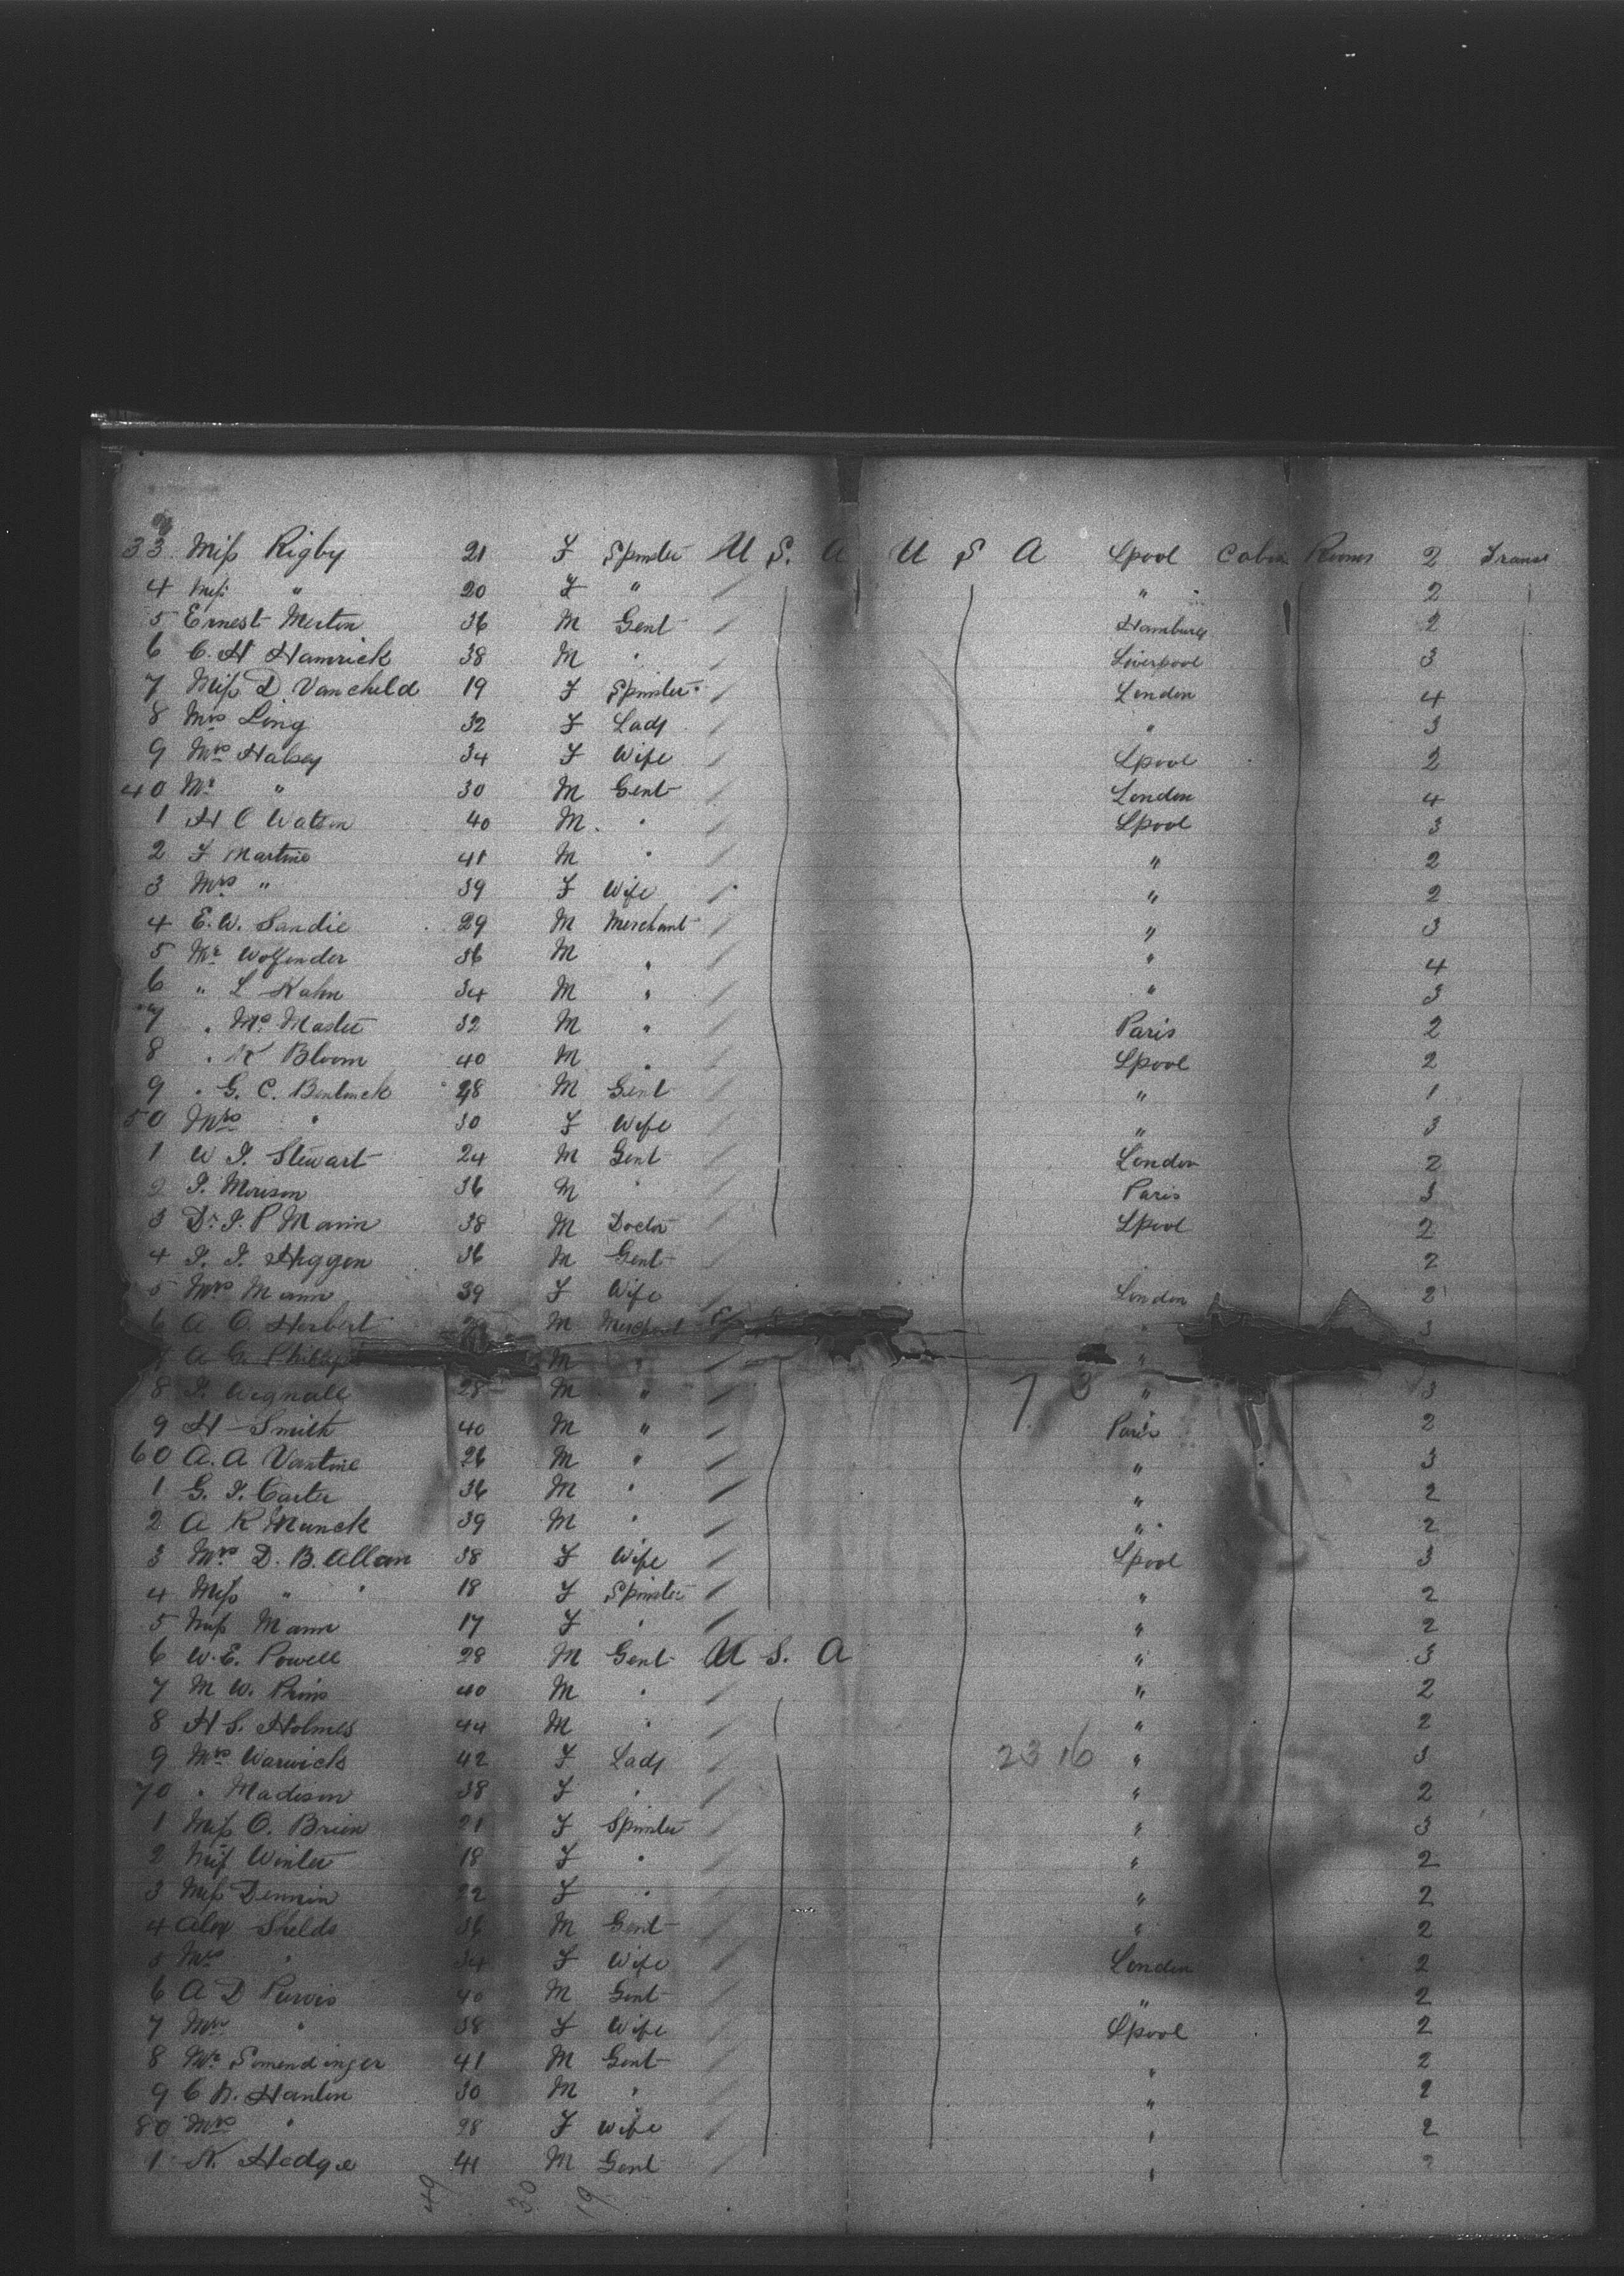 33 Miss Rigby 21 F Spinster U S. A U S A Lpool Cabin Rooms 2 Trans
4 Miss " 20 F " " 2
5 Ernest Merten 36 M Gent Hamburg 2
6 C. H Hamrick 38 M " Liverpool 3
7 Miss D. Vanscheld 19 F Spinster London 4
8 Mrs Ling 32 F Lady " 3
9 Mrs Halsey 34 F Wife Lpool 2
40 Mr " 30 M Gent London 4
1 H C Watson 40 M. " Lpool 3
2 F Martine 41 M " " 2
3 Mrs " 39 F Wife " 2
4 E. W. Sandie 29 M Merchant " 3
5 Mr Wolfender 36 M " " 4
6 " L Kahn 34 M " " 3
7 " Mc Master 32 M " Paris 2
8 " K Bloom 40 M " Lpool 2
9 " G. C. Bentinck 28 M Gent " 1
50 Mrs " 30 F Wife " 3
1 W J. Stewart 24 M Gent London 2
2 J. Morison 36 M " Paris 3
3 Dr J. P Mann 38 M Doctor Lpool 2
4 J. J. Higgen 36 M Gent 2
5 Mrs Mann 39 F Wife London 2
6 A. O. Herbert M Merchant " 3
7 A G. Phillips M " "
8 J. Wignall 28 M " " 3
9 H Smith 40 M " Paris 2
60 A. A Vantine 26 M " " 3
1 G. J. Carter 36 M " " 2
2 A K Munck 39 M " " 2
3 Mrs D. B. Allan 38 F Wife Lpool 3
4 Miss " " 18 F Spinster " 2
5 Miss Mann 17 F " " 2
6 W. E. Powell 28 M Gent U S. A " 3
7 M W. Prins 40 M " " 2
8 H S. Holmes 44 M " " 2
9 Mrs Warwick 42 F Lady 23 16 " 3
70 " Madison 38 F " " 2
1 Miss O. Brien 21 F Spinster " 3
2 Miss Winter 18 F " " 2
3 Miss Dennin 22 F " " 2
4 Alex Shelds 36 M Gent " 2
5 Mrs " 34 F Wife London 2
6 A D Purvis 40 M Gent " 2
7 Mrs " 38 F Wife Lpool 2
8 Mr Somendinger 41 M Gent " 2
9 C N. Hanlen 30 M " " 2
80 Mrs " 28 F Wife " 2
1 N. Hedge 41 M Gent " 2
49 30 19